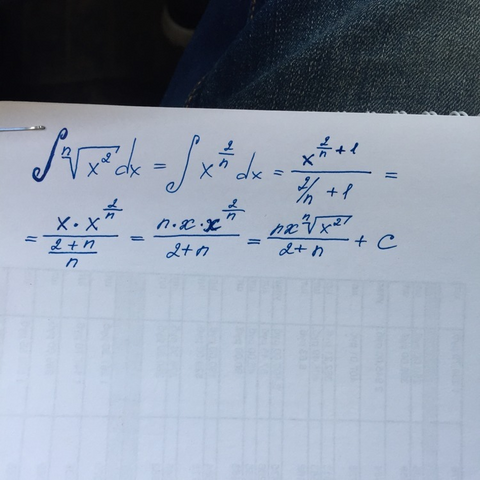 ∫ ⁿ√(x²) dx = ∫ x^(2/n) dx = x^(2/n + 1) / (2/n + 1) =
= x · x^(2/n) / ((2 + n)/n) = n · x · x^(2/n) / (2 + n) = nx ⁿ√(x²) / (2 + n) + C